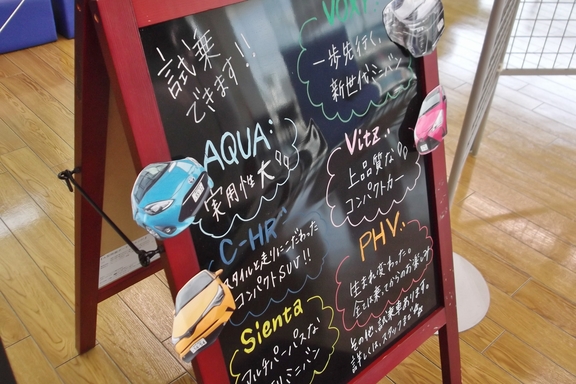 試乗
できます!!
VOXY
一歩先行く、
新世代ミニバン
AQUA:
実用性大!!
Vitz:
上品質な
コンパクトカー
C-HR
スタイルと走りにこだわった
コンパクトSUV!!
PHV:
生まれ変わった。
全ては乗ってからのお楽しみ
Sienta
マルチパーパスな
ミニバン
その他、試乗車あります。
詳しくは、スタッフまで